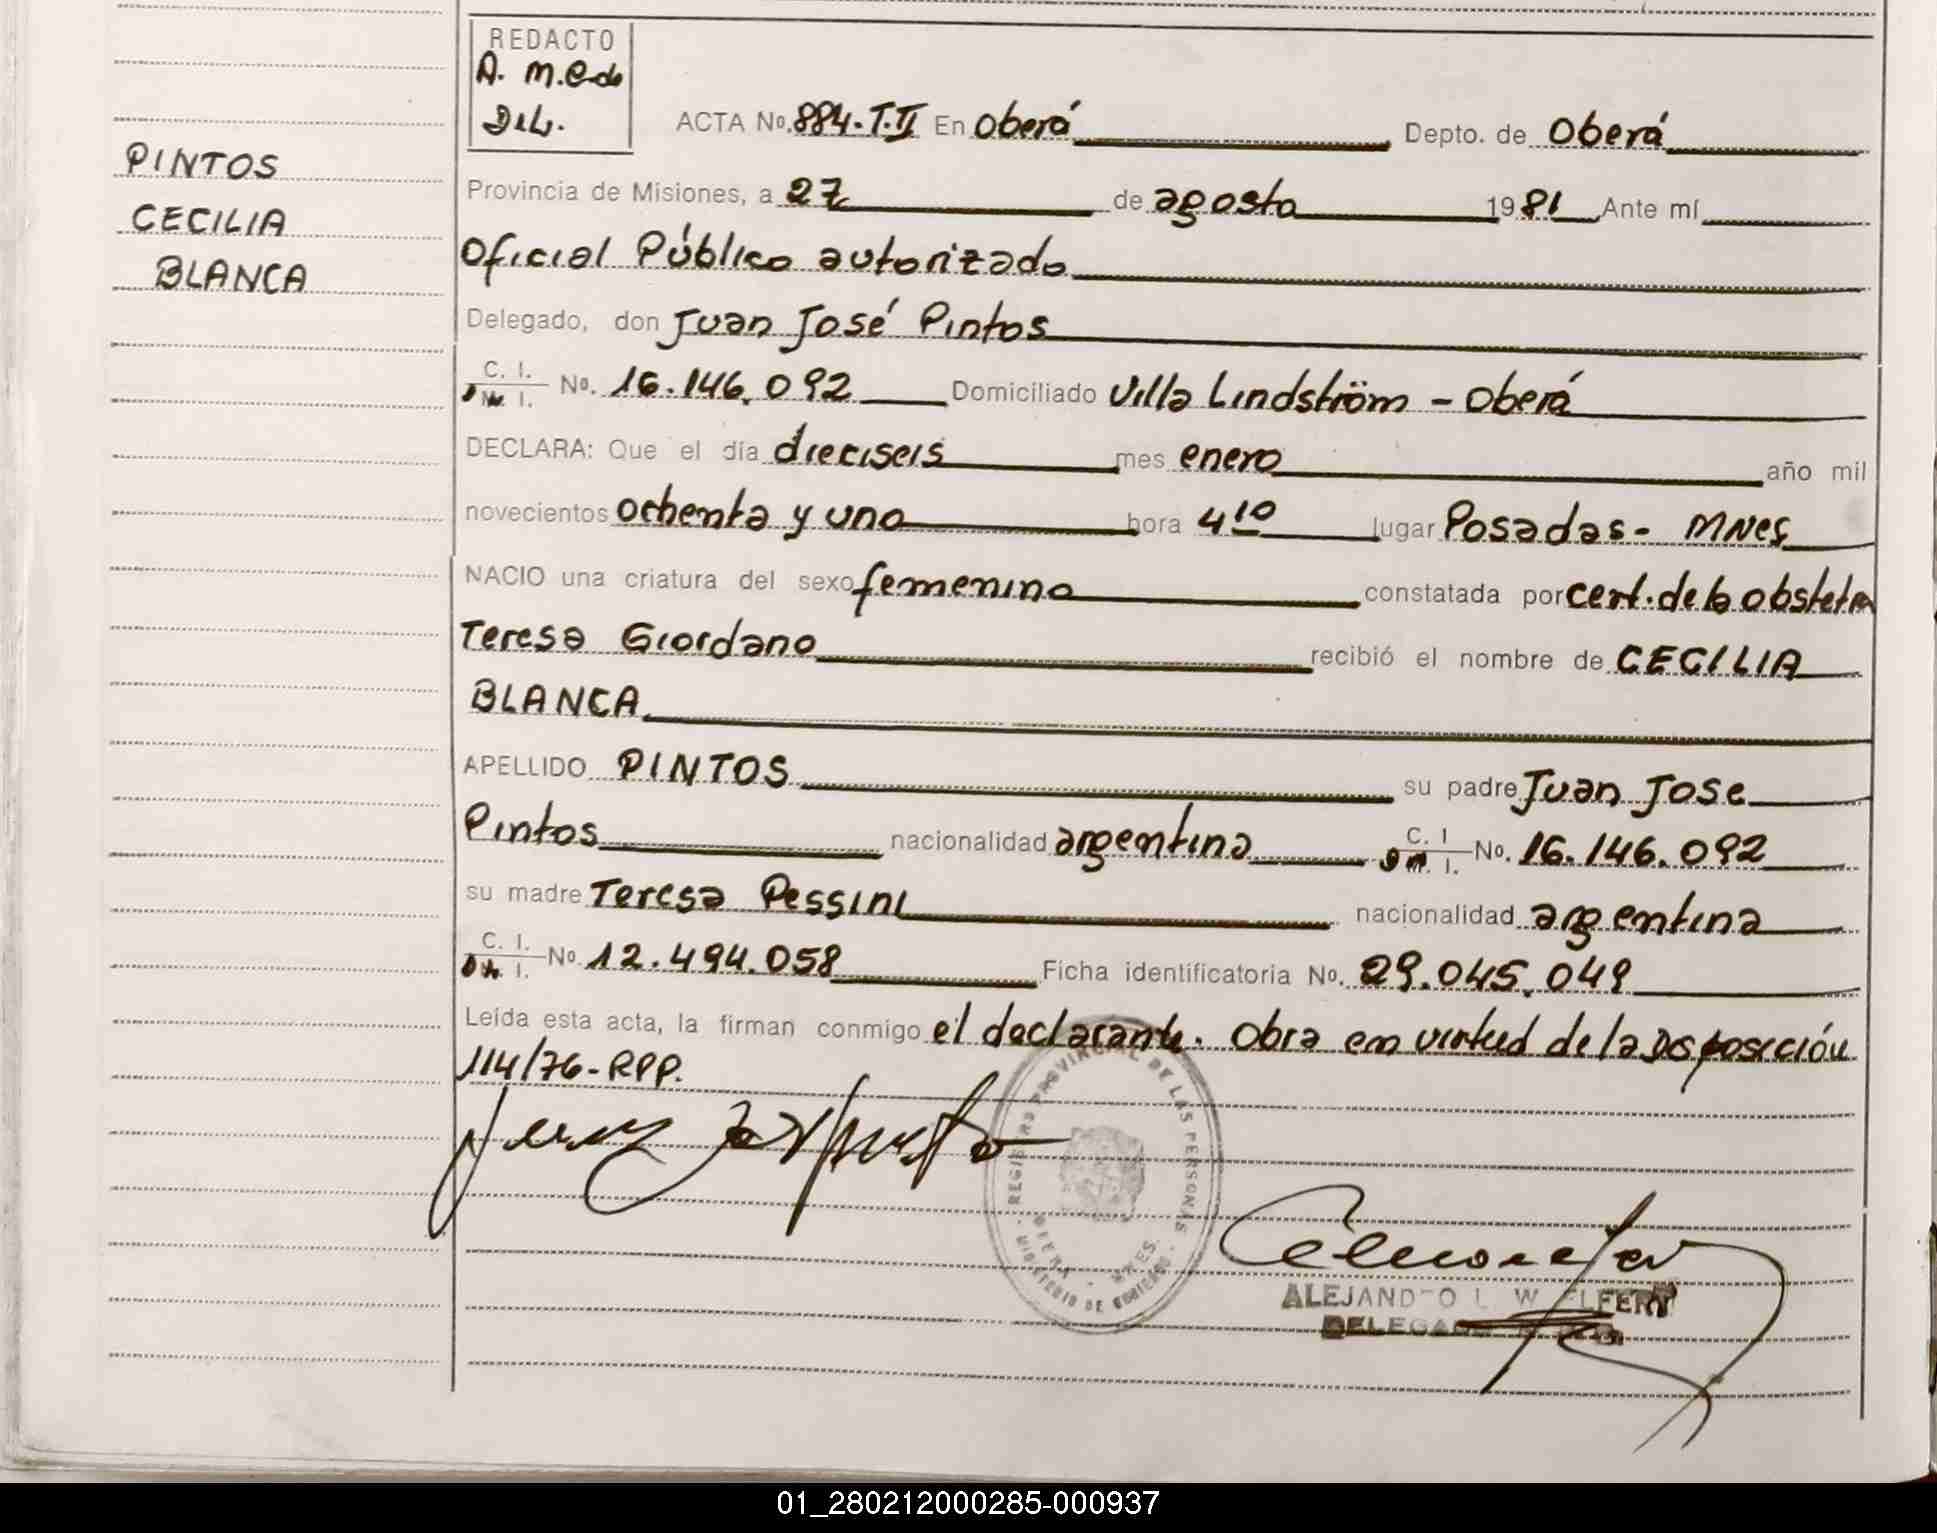 REDACTO
A. M. C. de
Del.
ACTA No. 884-T.II En Oberá Depto. de Oberá
PINTOS
CECILIA
BLANCA
Provincia de Misiones, a 27 de agosto 1981 Ante mí
Oficial Público autorizado
Delegado, don Juan José Pintos
C. I. D.N. I. No. 16.146.092 Domiciliado Villa Lindström - Oberá
DECLARA: Que el día dieciseis mes enero año mil
novecientos ochenta y uno hora 4 10 lugar Posadas - MNes
NACIO una criatura del sexo femenino constatada por cert. de la obstetra
Teresa Giordano recibió el nombre de CECILIA
BLANCA
APELLIDO PINTOS su padre Juan Jose
Pintos nacionalidad argentina C. I D.N. I. No. 16.146.092
su madre Teresa Pessini nacionalidad argentina
C. I. D.N. I. No. 12.494.058 Ficha identificatoria No. 29.045.049
Leída esta acta, la firman conmigo el declarante. Obra en virtud de la Disposición
114/76-RPP.
REGISTRO PROVINCIAL DE LAS PERSONAS
OBERA - MNES.
MINISTERIO DE GOBIERNO
ALEJANDRO L. W. ELFERT
DELEGADO
01_280212000285-000937